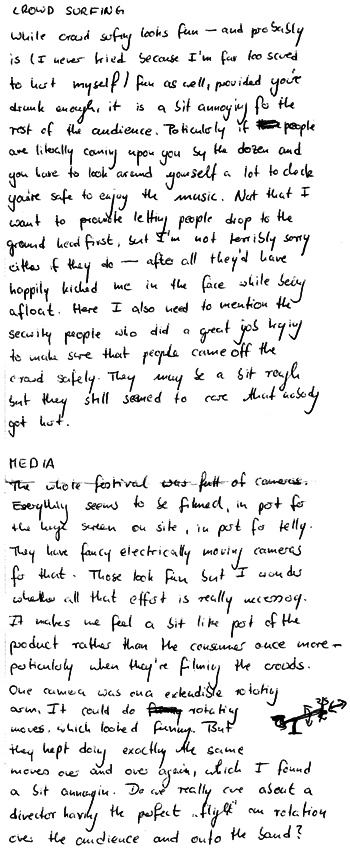 CROWD SURFING
While crowd surfing looks fun – and probably
is (I never tried because I'm far too scared
to hurt myself) fun as well, provided you're
drunk enough, it is a bit annoying for the
rest of the audience. Particularly if people
are literally coming upon you by the dozen and
you have to look around yourself a lot to check
you're safe to enjoy the music. Not that I
want to promote letting people drop to the
ground head first, but I'm not terribly sorry
either if they do – after all they'd have
happily kicked me in the face while being
afloat. Here I also need to mention the
security people who did a great job trying
to make sure that people came off the
crowd safely. They may be a bit rough
but they still seemed to care that nobody
got hurt.
MEDIA
The whole festival was full of cameras.
Everything seems to be filmed, in part for
the huge screen on site, in part for telly.
They have fancy electrically moving cameras
for that. Those look fun but I wonder
whether all that effort is really necessary.
It makes me feel a bit like part of the
product rather than the consumer once more –
particularly when they're filming the crowds.
One camera was on a extendible rotating
arm. It could do funny rotating
moves, which looked funny. But
they kept doing exactly the same
moves over and over again, which I found
a bit annoying. Do we really care about a
director having the perfect „flight" an rotation
over the audience and onto the band?